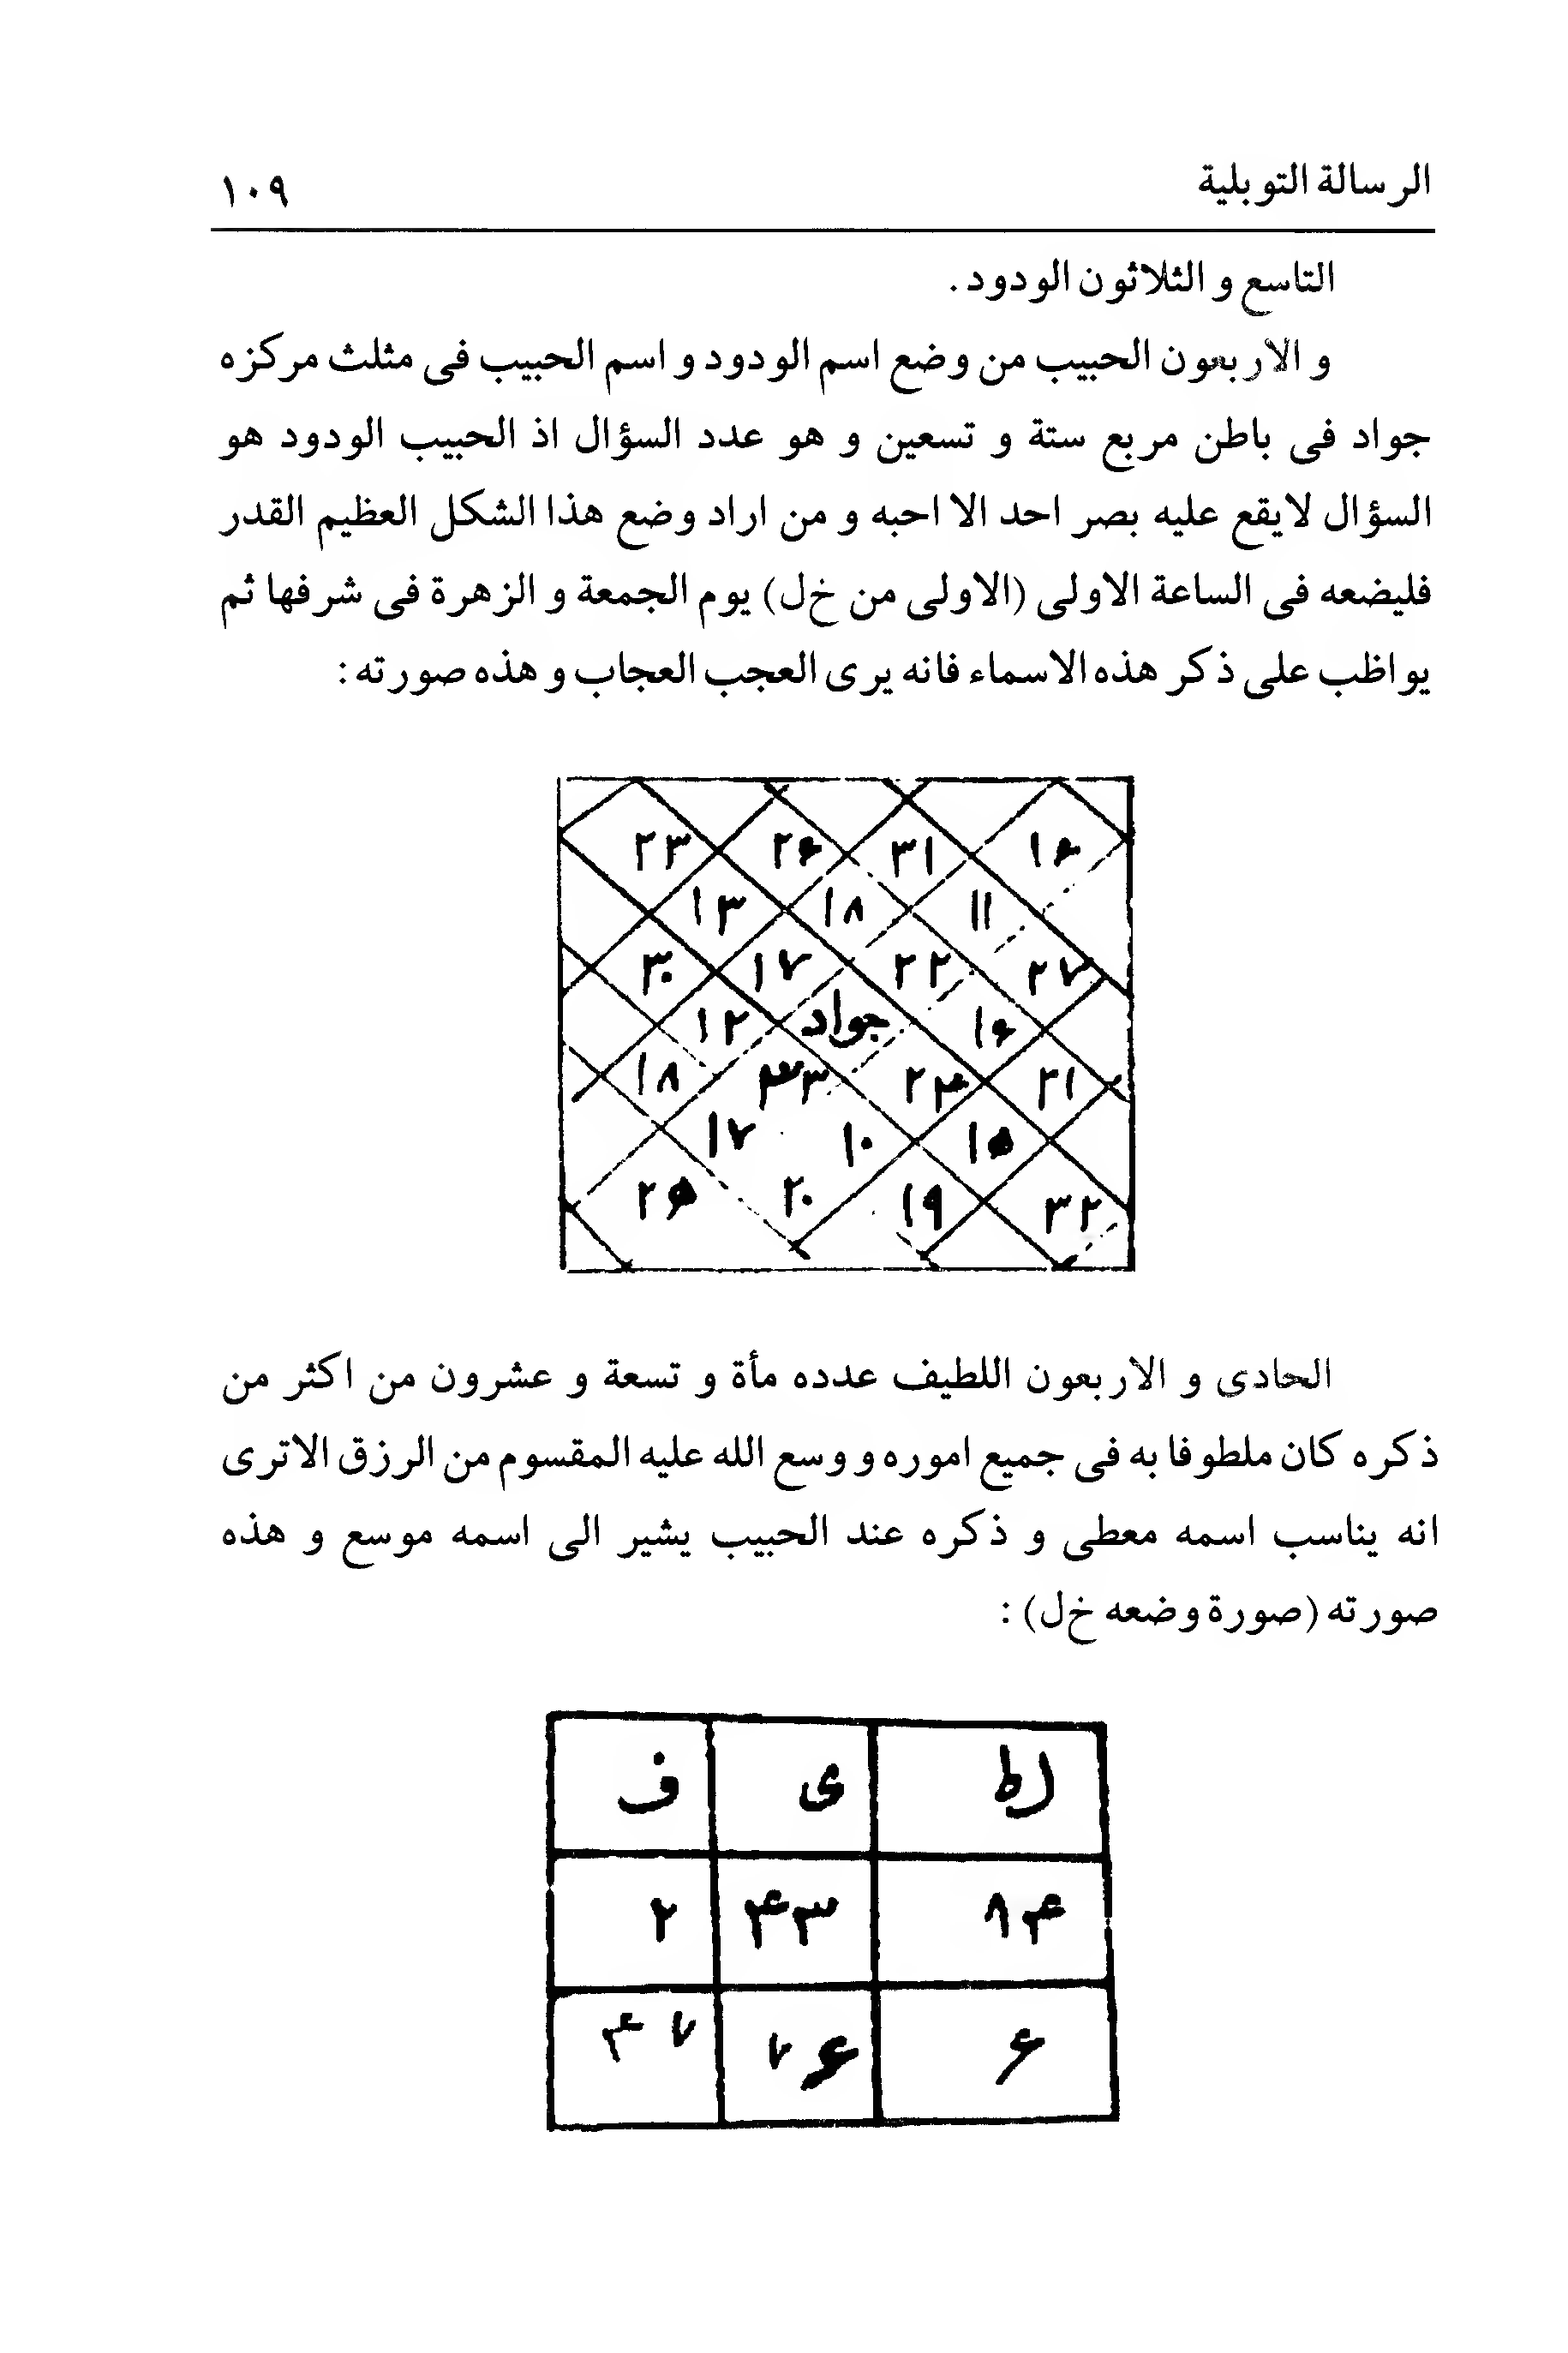 الرسالة التوبلية ١٠٩
التاسع و الثلاثون الودود .
و الاربعون الحبيب من وضع اسم الودود و اسم الحبيب فى مثلث مركزه
جواد فى باطن مربع ستة و تسعين و هو عدد السؤال اذ الحبيب الودود هو
السؤال لايقع عليه بصر احد الا احبه و من اراد وضع هذا الشكل العظيم القدر
فليضعه فى الساعة الاولى (الاولى من خ‌ل) يوم الجمعة و الزهرة فى شرفها ثم
يواظب على ذكر هذه الاسماء فانه يرى العجب العجاب و هذه صورته :
١۶ ٣١ ٢۶ ٢٣
١١ ١٨ ١٣
٢٧ ٢٢ ١٧ ٣٠
١۶ جواد ١٢
٢١ ٢۴ ١٨
١٥ ١٠ ١٧
٣٢ ١٩ ٢٠
الحادى و الاربعون اللطيف عدده مأة و تسعة و عشرون من اكثر من
ذكره كان ملطوفا به فى جميع اموره و وسع الله عليه المقسوم من الرزق الاترى
انه يناسب اسمه معطى و ذكره عند الحبيب يشير الى اسمه موسع و هذه
صورته (صورة وضعه خ‌ل) :
لط ى ف
٨۴ ۴٣ ٢
۶ ٧۶ ۴٧